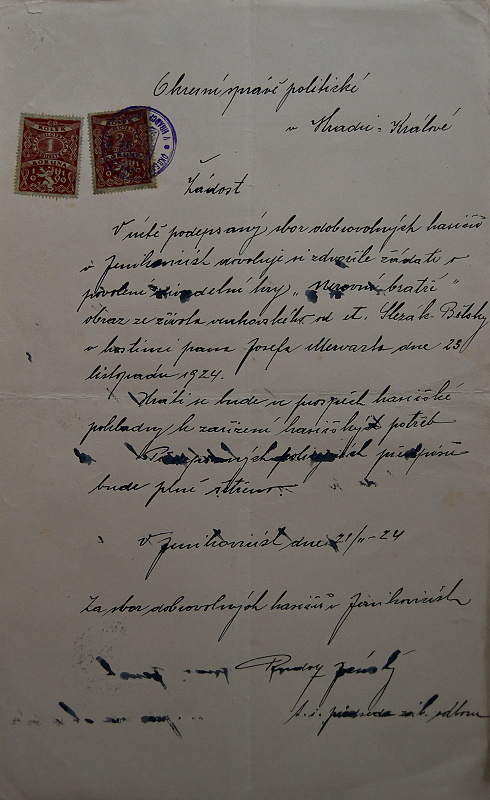 Okresní správě politické
v Hradci-Králové
KOLEK
1
KORUNA
KOLEK
2
KORUNY
Žádost
V úctě podepsaný sbor dobrovolných hasičů
v Jeníkovicích dovoluje si zdvořile žádati o
povolení divadelní hry „Nerovní bratři"
obraz ze života venkovského od
v hostinci pana Josefa Merwarta dne 23
listopadu 1924.
Hráti se bude ve prospěch hasičské
pokladny k zařízení hasičských potřeb
policejních předpisů
bude plně
V Jeníkovicích dne 21/11-24
Za sbor dobrovolných hasičů v Jeníkovicích
t. č. předseda záb. odboru